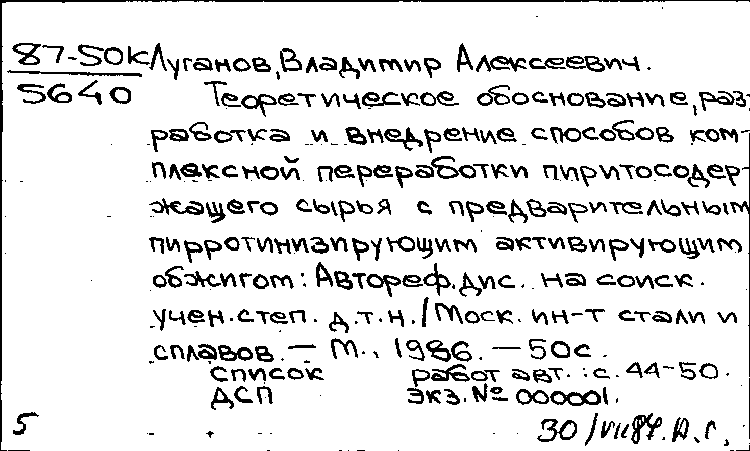 87-50К Луганов, Владимир Алексеевич.
5640 Теоретическое обоснование, раз-
работка и внедрение способов ком-
плексной переработки пиритосодер-
жащего сырья с предварительным
пирротинизирующим активирующим
обжигом: Автореф. дис. на соиск.
учен. степ. д.т.н. / Моск. ин-т стали и
сплавов. — М., 1986. — 50с.
список работ авт.: с. 44-50.
ДСП экз. № 000001.
5 30/VII87. А.Г.